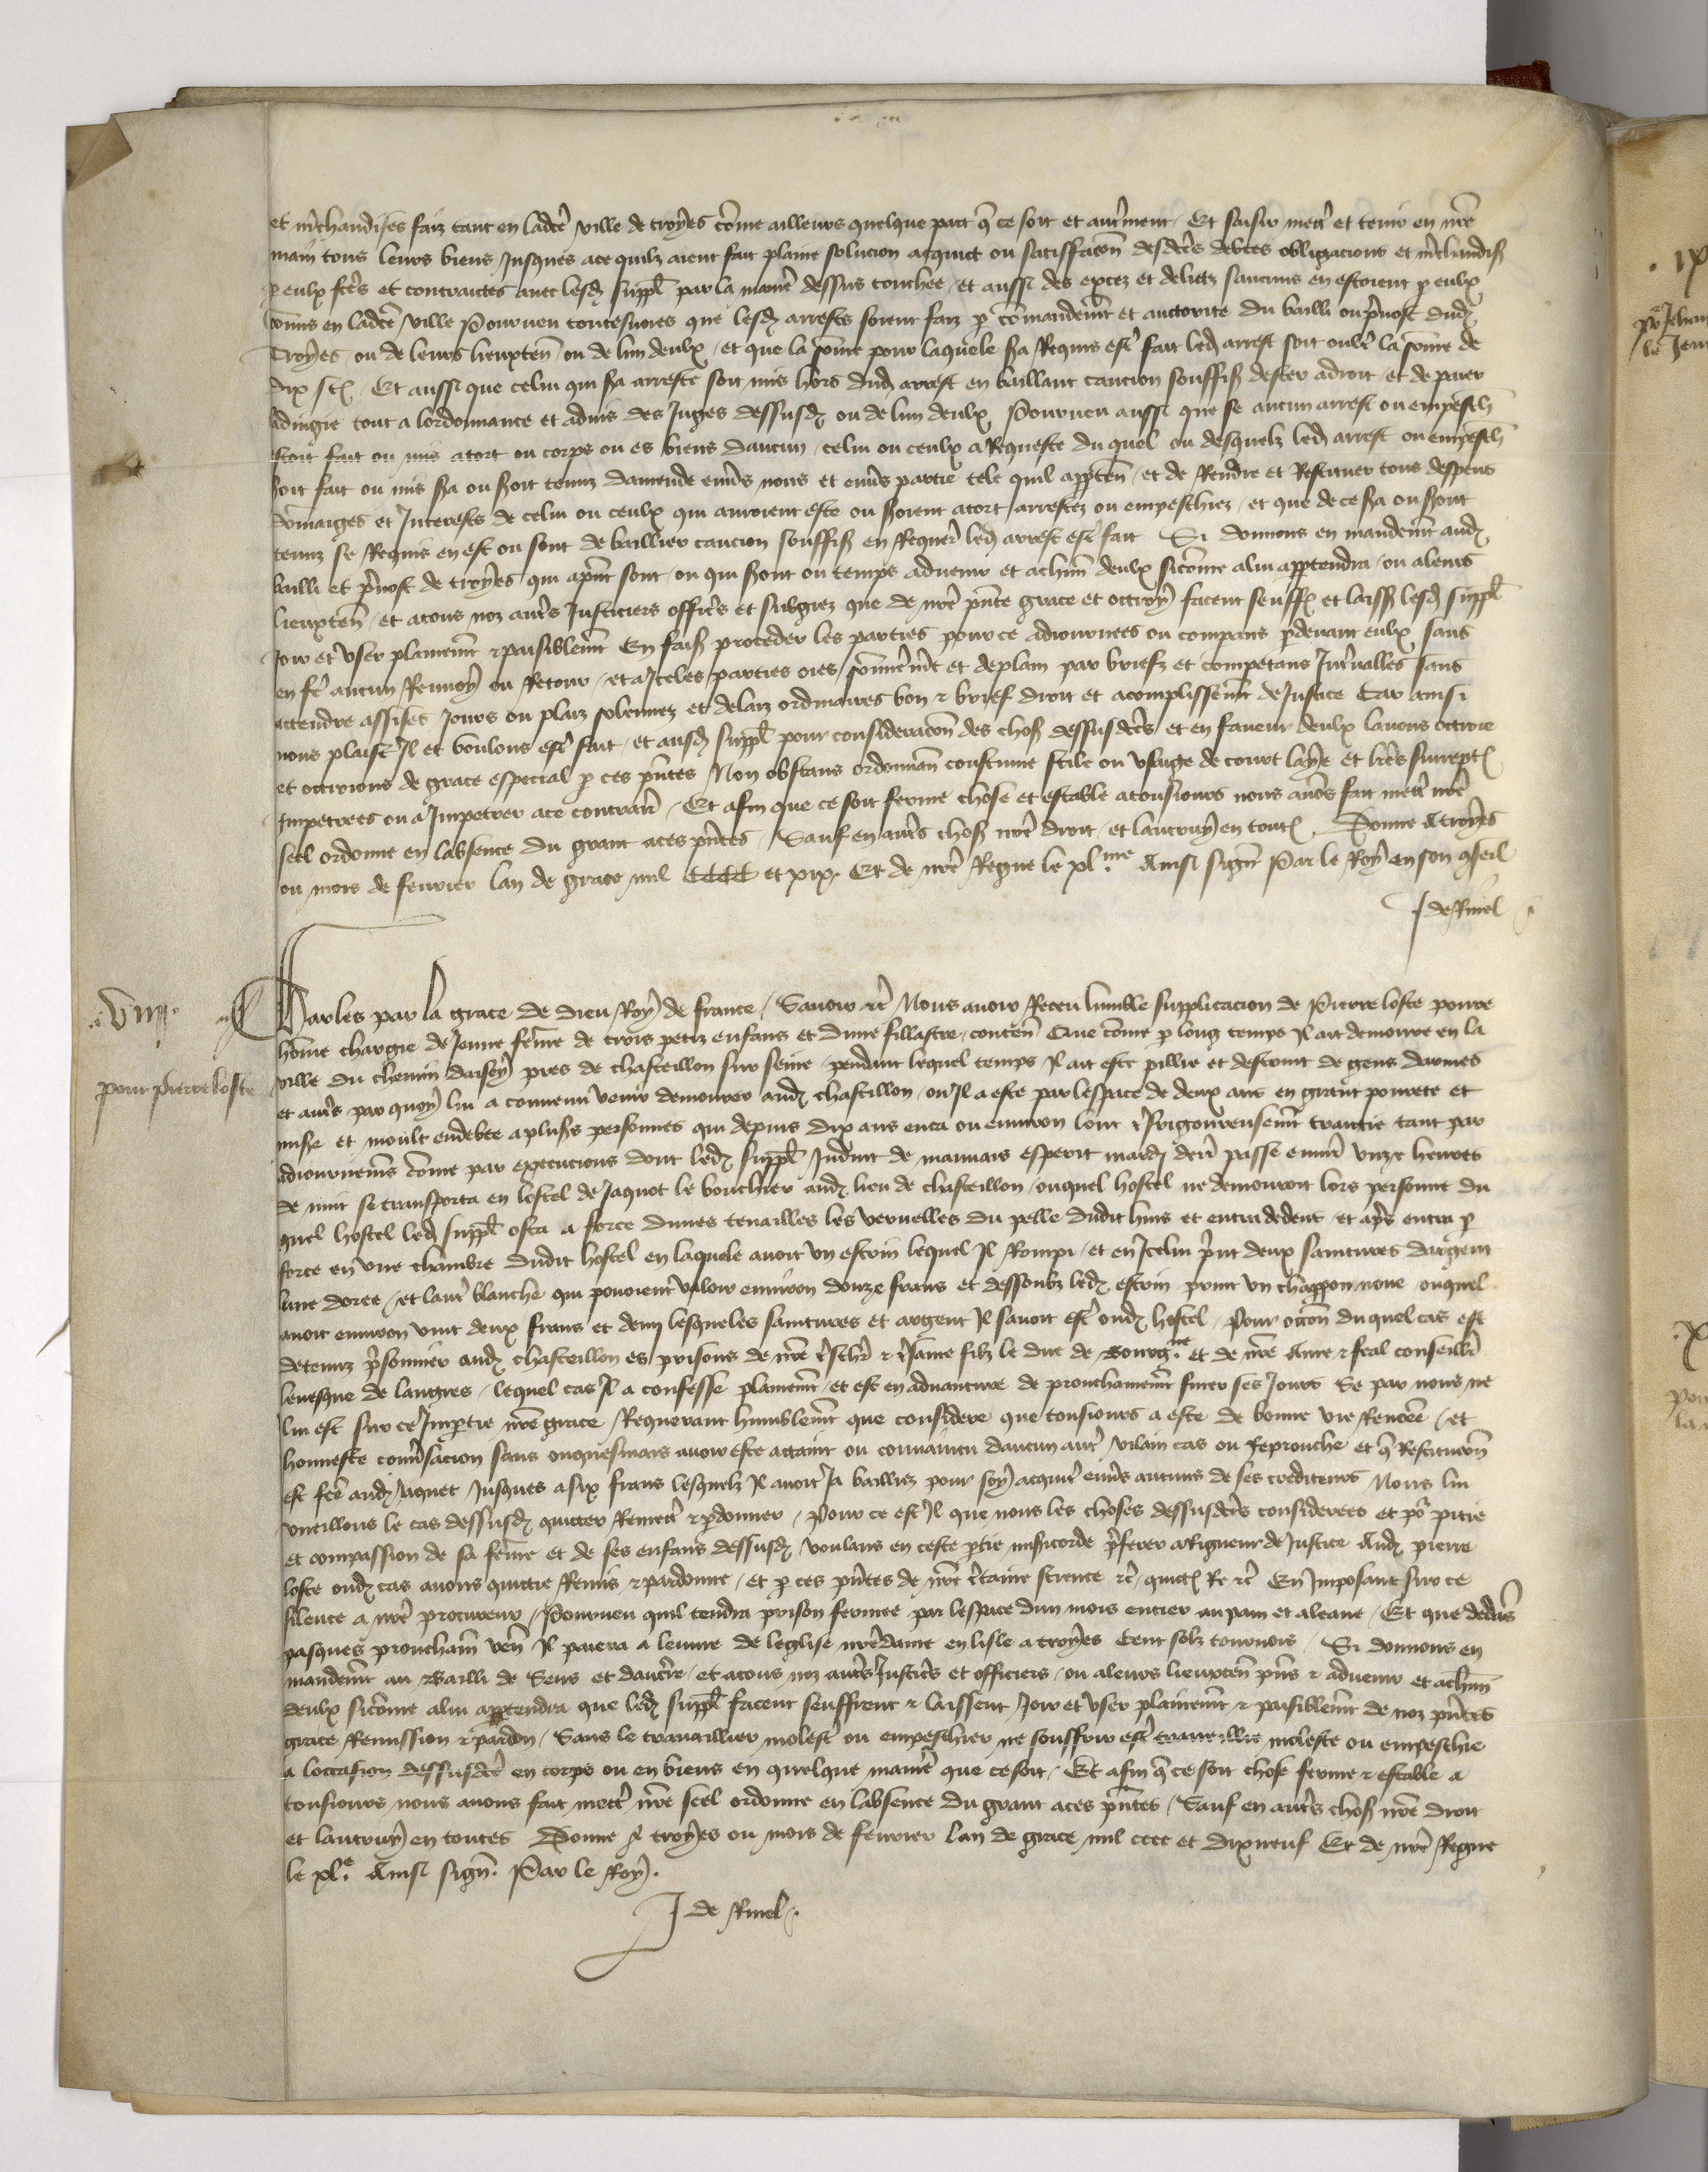 et mchandises faiz tant en ladce ville de troyes come ailleurs quelque part q ce soit et autrment / Et saisir mettr et tenir en nre
main tous leurs biens jusques ace quilz aient fait plaine solucion acquict ou satisffacon desdces debtes obligacions et mchandis
p eulx fces et contractees avec lesd suppl par la manier dessus touchee / et aussi des excez et delictz saucuns en estoient p eulx
commis en ladce ville Pourveu toutesvoies que lesd arrests soient faiz p comandemt et auctorite du bailli ou pvost dud
Troyes ou de leurs lieuxten ou de lun deulx / et que la some pour laquele sa Requis estr fait led arrest soit oultr la some de
dix s t Et aussi que celui qui sa arreste soit mis hors dud arrest en baillant caucion souffis dester adroit et de paier
ladiugie tout a lordonnance et advis des juges dessusd ou de lun deulx Pourveu aussi que se aucun arrest ou empesch
estoit fait ou mis atort ou corps ou es biens daucun / celui ou ceulx a Requeste du quel ou desquelz led arrest ou empesch
soit fait ou mis sa ou soit tenuz damende envs nous et envs partie tele quil apprten / et de Rendre et Restituer tous despens
domaiges et jnterests de celui ou ceulx qui auroient este ou soient atort arrestez ou empeschiez / et que de ce sa ou sont
tenuz se Requis en est ou sont de baillier caucion souffis en Requert led arrest estr fait Si donnons en mandemt aud
bailli et pvost de troyes qui apnt sont / ou qui sont ou temps advenir et achun deulx sicome alui apptendra / ou aleurs
lieuxten / et atous noz autrs justiciers officrs et subgiez que de nre pnte grace et octroy facent seuffr et laiss lesd suppl
jour et user plainemt et paisiblemt En fais proceder les parties pour ce adiournees ou compans pdevant eulx sans
en fe aucun Renvoy ou Retour / et a jceles parties oies sommermt et deplain par briefz et competans jntvalles sans
attendre assises jours ou plaiz solennez et delaiz ordinaires bon et brief droit et acomplissemt de justice Car ainsi
nous plaist jl et voulons estr fait / et ausd suppl pour consideracon des chos dessusdces et en faveur deulx lavons octroie
et octroions de grace especial p ces pntes Non obstans ordonnan coustume stile ou usage de court laye et lrres surrept
jmpetrees ou a jmpetrer ace contrair / Et afin que ce soit ferme chose et estable atousiours nous avos fait mettr nre
seel ordonne en labsence du grant aces pntes / Sauf en autrs chos nre droit / et lautruy en tout Donne Atroyes
ou mois de fevrier lan de grace mil CCCC et xix. Et de nre Regne le xl.me Ainsi signe Par le Roy en son gseil
J de Rinel
.viii.
Charles par la grace de dieu Roy de france / Savoir etc Nous avoir Receu lumble supplicacion de Pierre loste povre
home chargie de jeune feme de trois petiz enfans et dune fillastre / conten Que come p long temps jl ait demoure en la
ville du chemin daisey pres de chasteillon sur seine / pendant lequel temps jl ait este pillie et destruit de gens darmes
pour pierre loste
et autrs par quoy lui a convenu venir demourer aud chastillon / ou jl a este par lespace de deux ans en grant povrete et
mise et moult endebte aplusrs personnes qui depuis dix ans enca ou environ lont trsrigoureusemt traictie tant par
adiournemens come par execucions dont led suppl jnduit de mauvais esperit mardj derr passe envir unze heures
de nuit se transporta en lostel de jaquot le bouchier aud lieu de chasteillon / ouquel hostel ne demouroit lors personne du
quel hostel led suppl osta a force dunes tenailles les vervelles du pelle dudit huis et entra dedens / et aps entra p
force en une chambre dudit hostel en laquele avoit un escrin lequel jl Rompi / et en jcelui prnt deux saintures dargent
lune doree / et lautr blanche qui povoient valoir environ douze frans et dessoubz led escrin print un chappon noue ouquel
avoit environ vint deux frans et demj lesqueles saintures et argent jl savoit estr oud hostel / Pour occon duquel cas est
detenuz psonnier aud chasteillon es prisons de nre trschr et trsame filz le duc de Bourg.ne et de nre Ame et feal conseillr
levesque de langres / lequel cas jl a confesse plainemt / et est en advanture de prouchainemt finer ses jours Se par nous ne
lui est sur ce jmptie nre grace Requerant humblemt que considere que tousiours a este de bonne vie Renome / et
honneste convsacion sans onquesmais avoir este attaint ou convaincu daucun autr vilain cas ou Reprouche et q Restitucon
est fce aud jaquet jusques asix frans lesquelz jl avoit ja bailliez pour soy acquitr envs aucuns de ses crediteurs Nous lui
vueillons le cas dessusd quicter Remettr et pdonner / Pour ce est jl que nous les choses dessusdces considerees et por pitie
et compassion de sa feme et de ses enfans dessusd voulans en ceste ptie misicorde prferer aRigueur de justice Aud pierre
loste oud cas avons quictie Remis et pardonne / et p ces pntes de nre ctaine science etc / quict Re etc En jmposant sur ce
silence a nre procureur / Pourveu quil tendra prison fermee par lespace dun mois entier au pain et aleaue / Et que dedns
pasques prouchain ven jl paiera a leuvre de leglise nredame en lisle a troyes Cent solz tournois / Si donnons en
mandemt au Bailli de Sens et daucrre / et atous noz autrs justicrs et officiers / ou aleurs lieuxten pns et advenir et achun
deulx sicome alui apptendra que led suppl facent seuffrent et laissent joir et user plainemt et paisiblemt de noz pntes
grace Remission et pardon / Sans le travaillier molestr ou empeschier ne souffrir estr travaillie moleste ou empeschie
a loccasion dessusdce en corps ou en biens en quelque manier que ce soit / Et afin q ce soit chose ferme et estable a
tousiours nous avons fait mettr nre seel ordonne en labsence du grant aces pntes / Sauf en autrs chos nre droit
et lautruy en toutes Donne A troyes ou mois de fevrier lan de grace mil cccc et dixneuf Et de nre Regne
le xl.e Ainsi signe. Par le Roy.
J de Rinel.